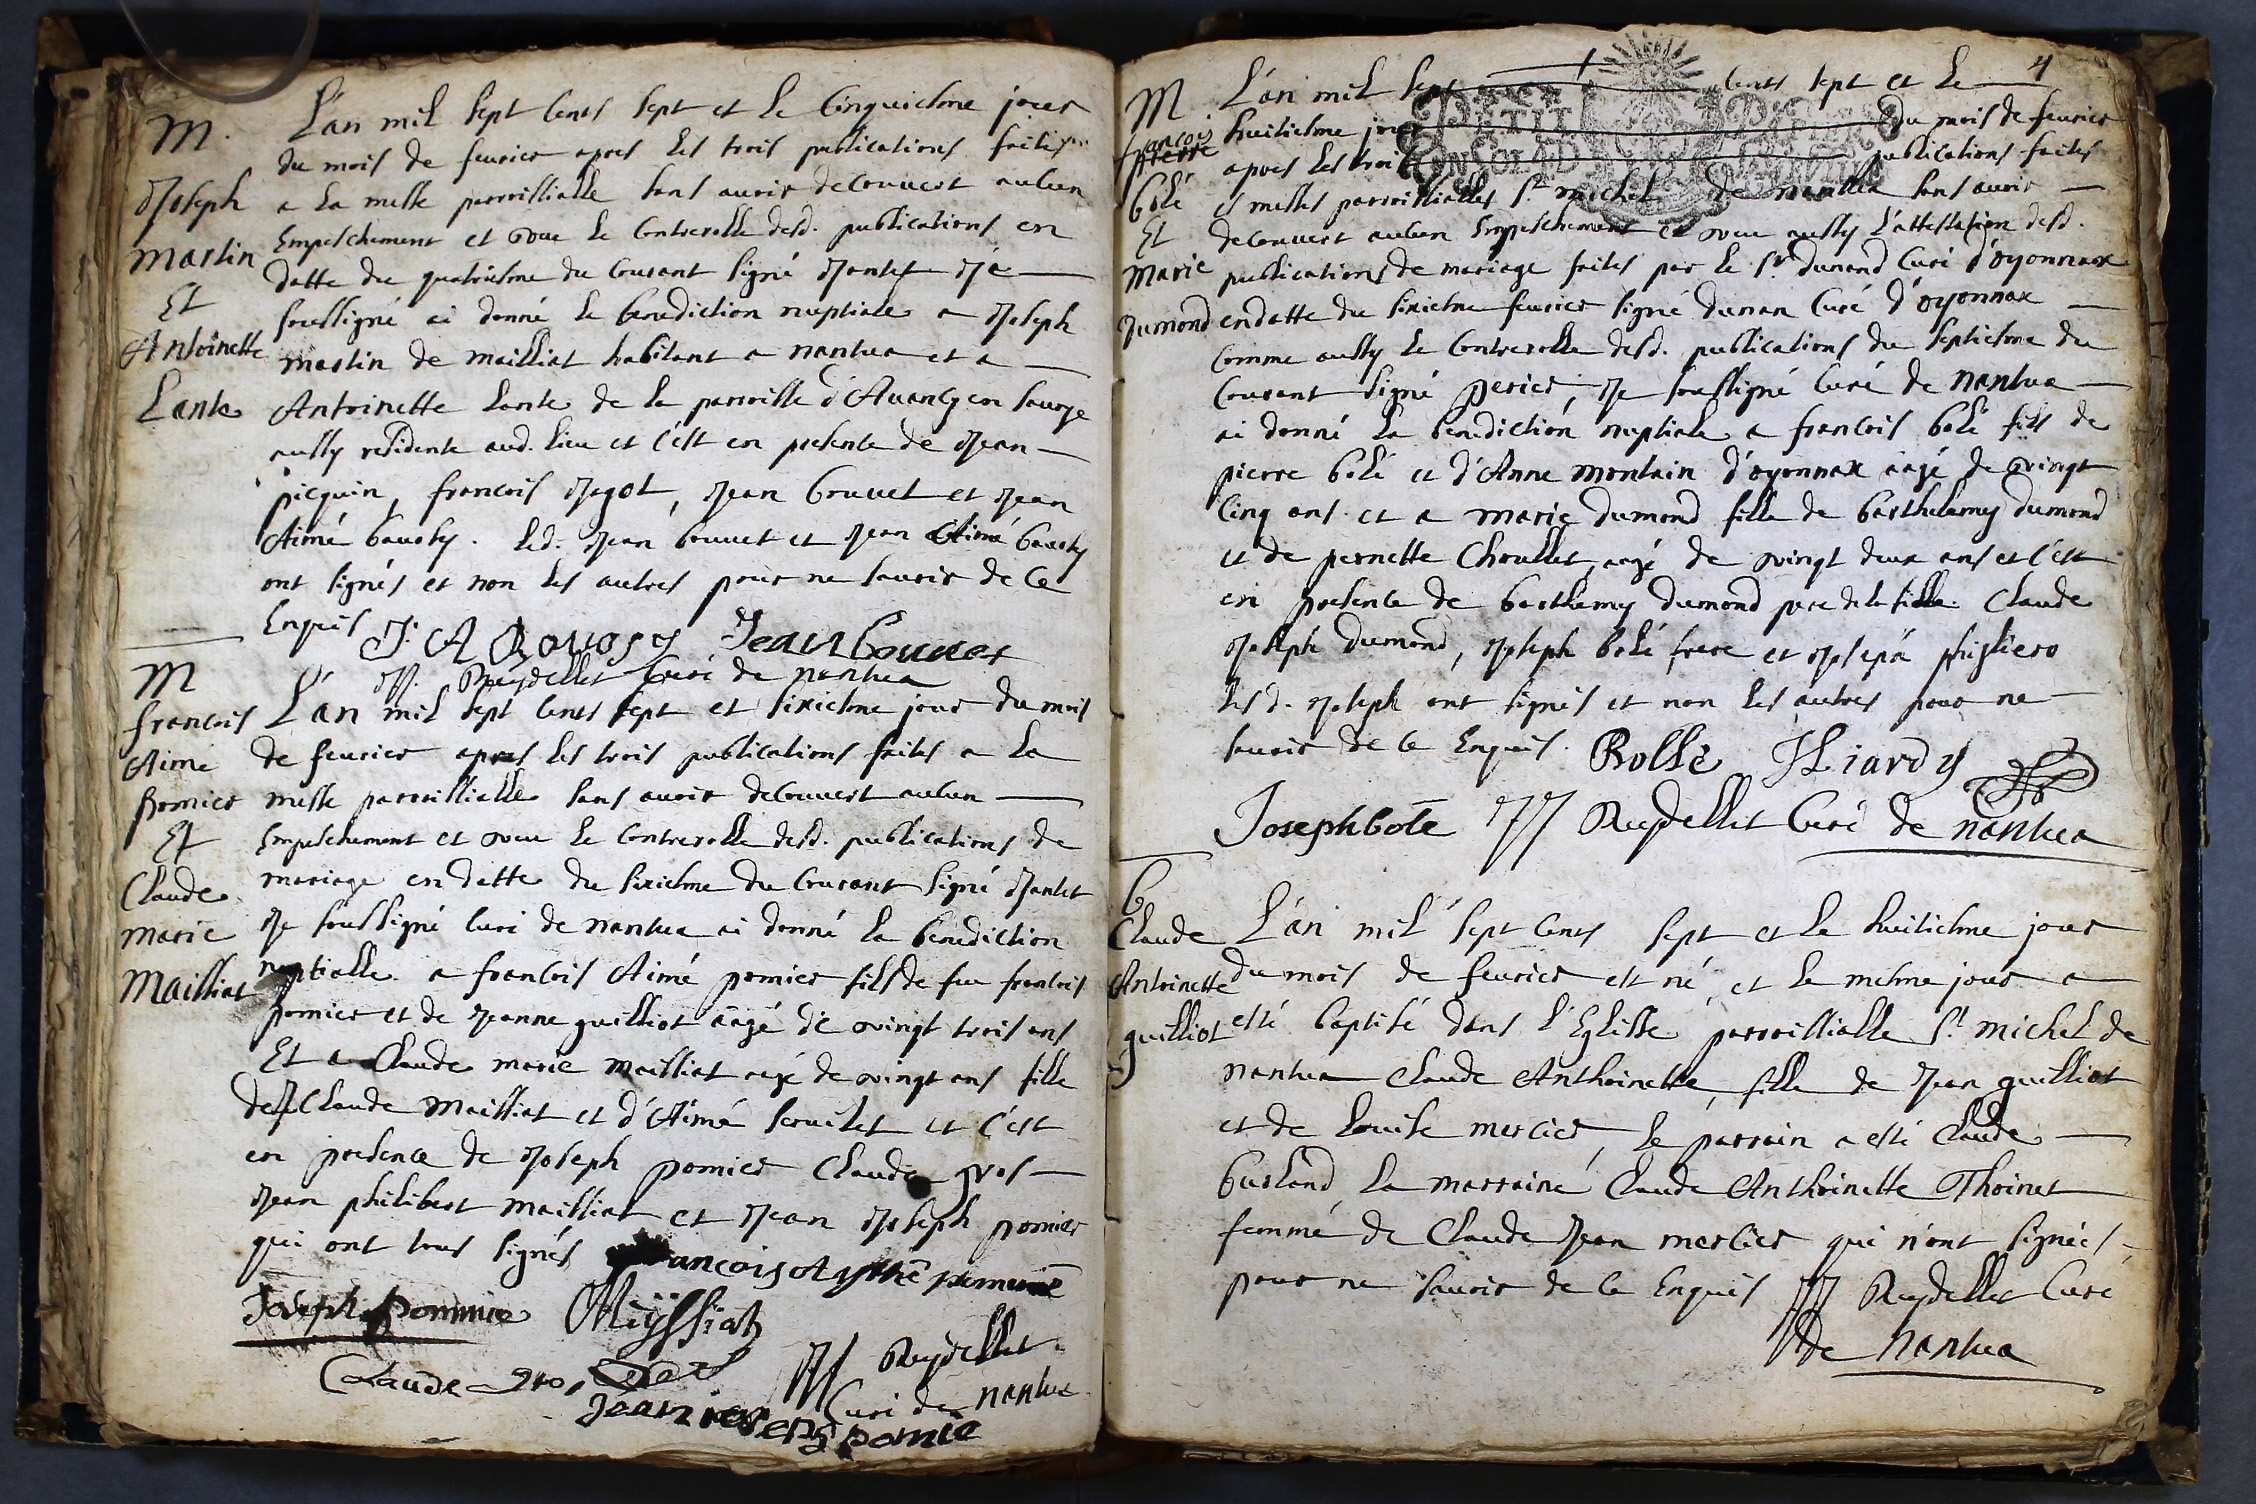 M.
Joseph
Martin
Et
Antoinette
Lante
L'an mil sept cents sept et le cinquiesme jour
du mois de feurier apres les trois publications faites
a la messe parroissialle sans auoir decouuert aucun
Empeschement et veu le Controlle desd. publications en
datte du quatriesme du Courant signé Jantet Je
soussigné ai donné la benediction nuptiale a Joseph
martin de mailliat habitant a nantua et a
Antoinette Lante de la parroisse d'Auancy en sauoye
aussy residente aud. lieu et c'est en presence de Jean
picquin, francois Jagot, Jean bouuet et Jean
Aimé bauosy. led. Jean bouuet et Jean Aimé bauosy
ont signés et non les autres pour ne sauoir de ce
Enquis J. A Bouosy Jean bouuet
JJ. Reydellet Curé de nantua
M
francois
Aimé
Pomier
Et
Claude
marie
Mailliat
L'an mil sept cents sept et sixiesme jour du mois
de feurier apres les trois publications faites a la
messe parroissialle sans auoir decouuert aucun
Empeschement et veu le Controlle desd. publications de
mariage en datte du sixiesme du Courant signé Jantet
Je soussigné Curé de nantua ai donné la benediction
nuptialle a francois Aimé pomier fils de feu francois
pomier et de Jeanne guilliot aagé de vingt trois ans
Et a Claude marie mailliat aagé de vingt ans fille
de Claude Mailliat et d'Aimé seruilet et c'est
en presence de Joseph pomier Claude gros
Jean philibert mailliat et Jean Joseph pomier
qui ont tous signés
Joseph Pommie Meyssiat
Claude gros JJ Reydellet
Curé de nantua
Jean Joseph pomie
4
M
francois
pierre
bolé
Et
Marie
Dumond
L'an mil sept cents sept et le
huitiesme jour du mois de feurier
apres les trois publications faites
es messes parroissialles St. michel de nantua sans auoir
decouuert aucun Empeschement et veu aussy L'attestation desd.
publications de mariage faites par le Sr. dunand Curé d'oyonnax
en datte du sixiesme feurier signé dunan Curé d'oyonnax
Comme aussy le Controlle desd. publications du septiesme du
Courant signé perier, Je soussigné Curé de nantua
ai donné la benediction nuptiale a francois bolé fils de
pierre bolé et d'Anne montain d'oyonnax aagé de vingt
cinq ans et a marie dumond fille de barthelemy dumond
et de pernette Choullet, aagé de vingt deux ans et c'est
en presence de barthlemy dumond pere de la fille Claude
Joseph dumond, Joseph bolé frere et Joseph
lesd. Joseph ont signés et non les autres pour ne
sauoir de ce Enquis. Rolle JLiardy
Joseph bolé JJ Reydellet Curé de nantua
b
Claude
Antoinette
guilliot
L'an mil sept cents sept et le huitiesme jour
du mois de feurier est né, et le mesme jour a
esté baptisé dans l'Eglisse parroissialle St. michel de
nantua Claude Anthoinette, fille de Jean guilliot
et de Louise mercier, le parrain a esté Claude
burland, la marraine Claude Anthoinette Thoinet
femme de Claude Jean mercier qui n'ont signés
pour ne sauoir de ce Enquis JJ Reydellet Curé
de nantua